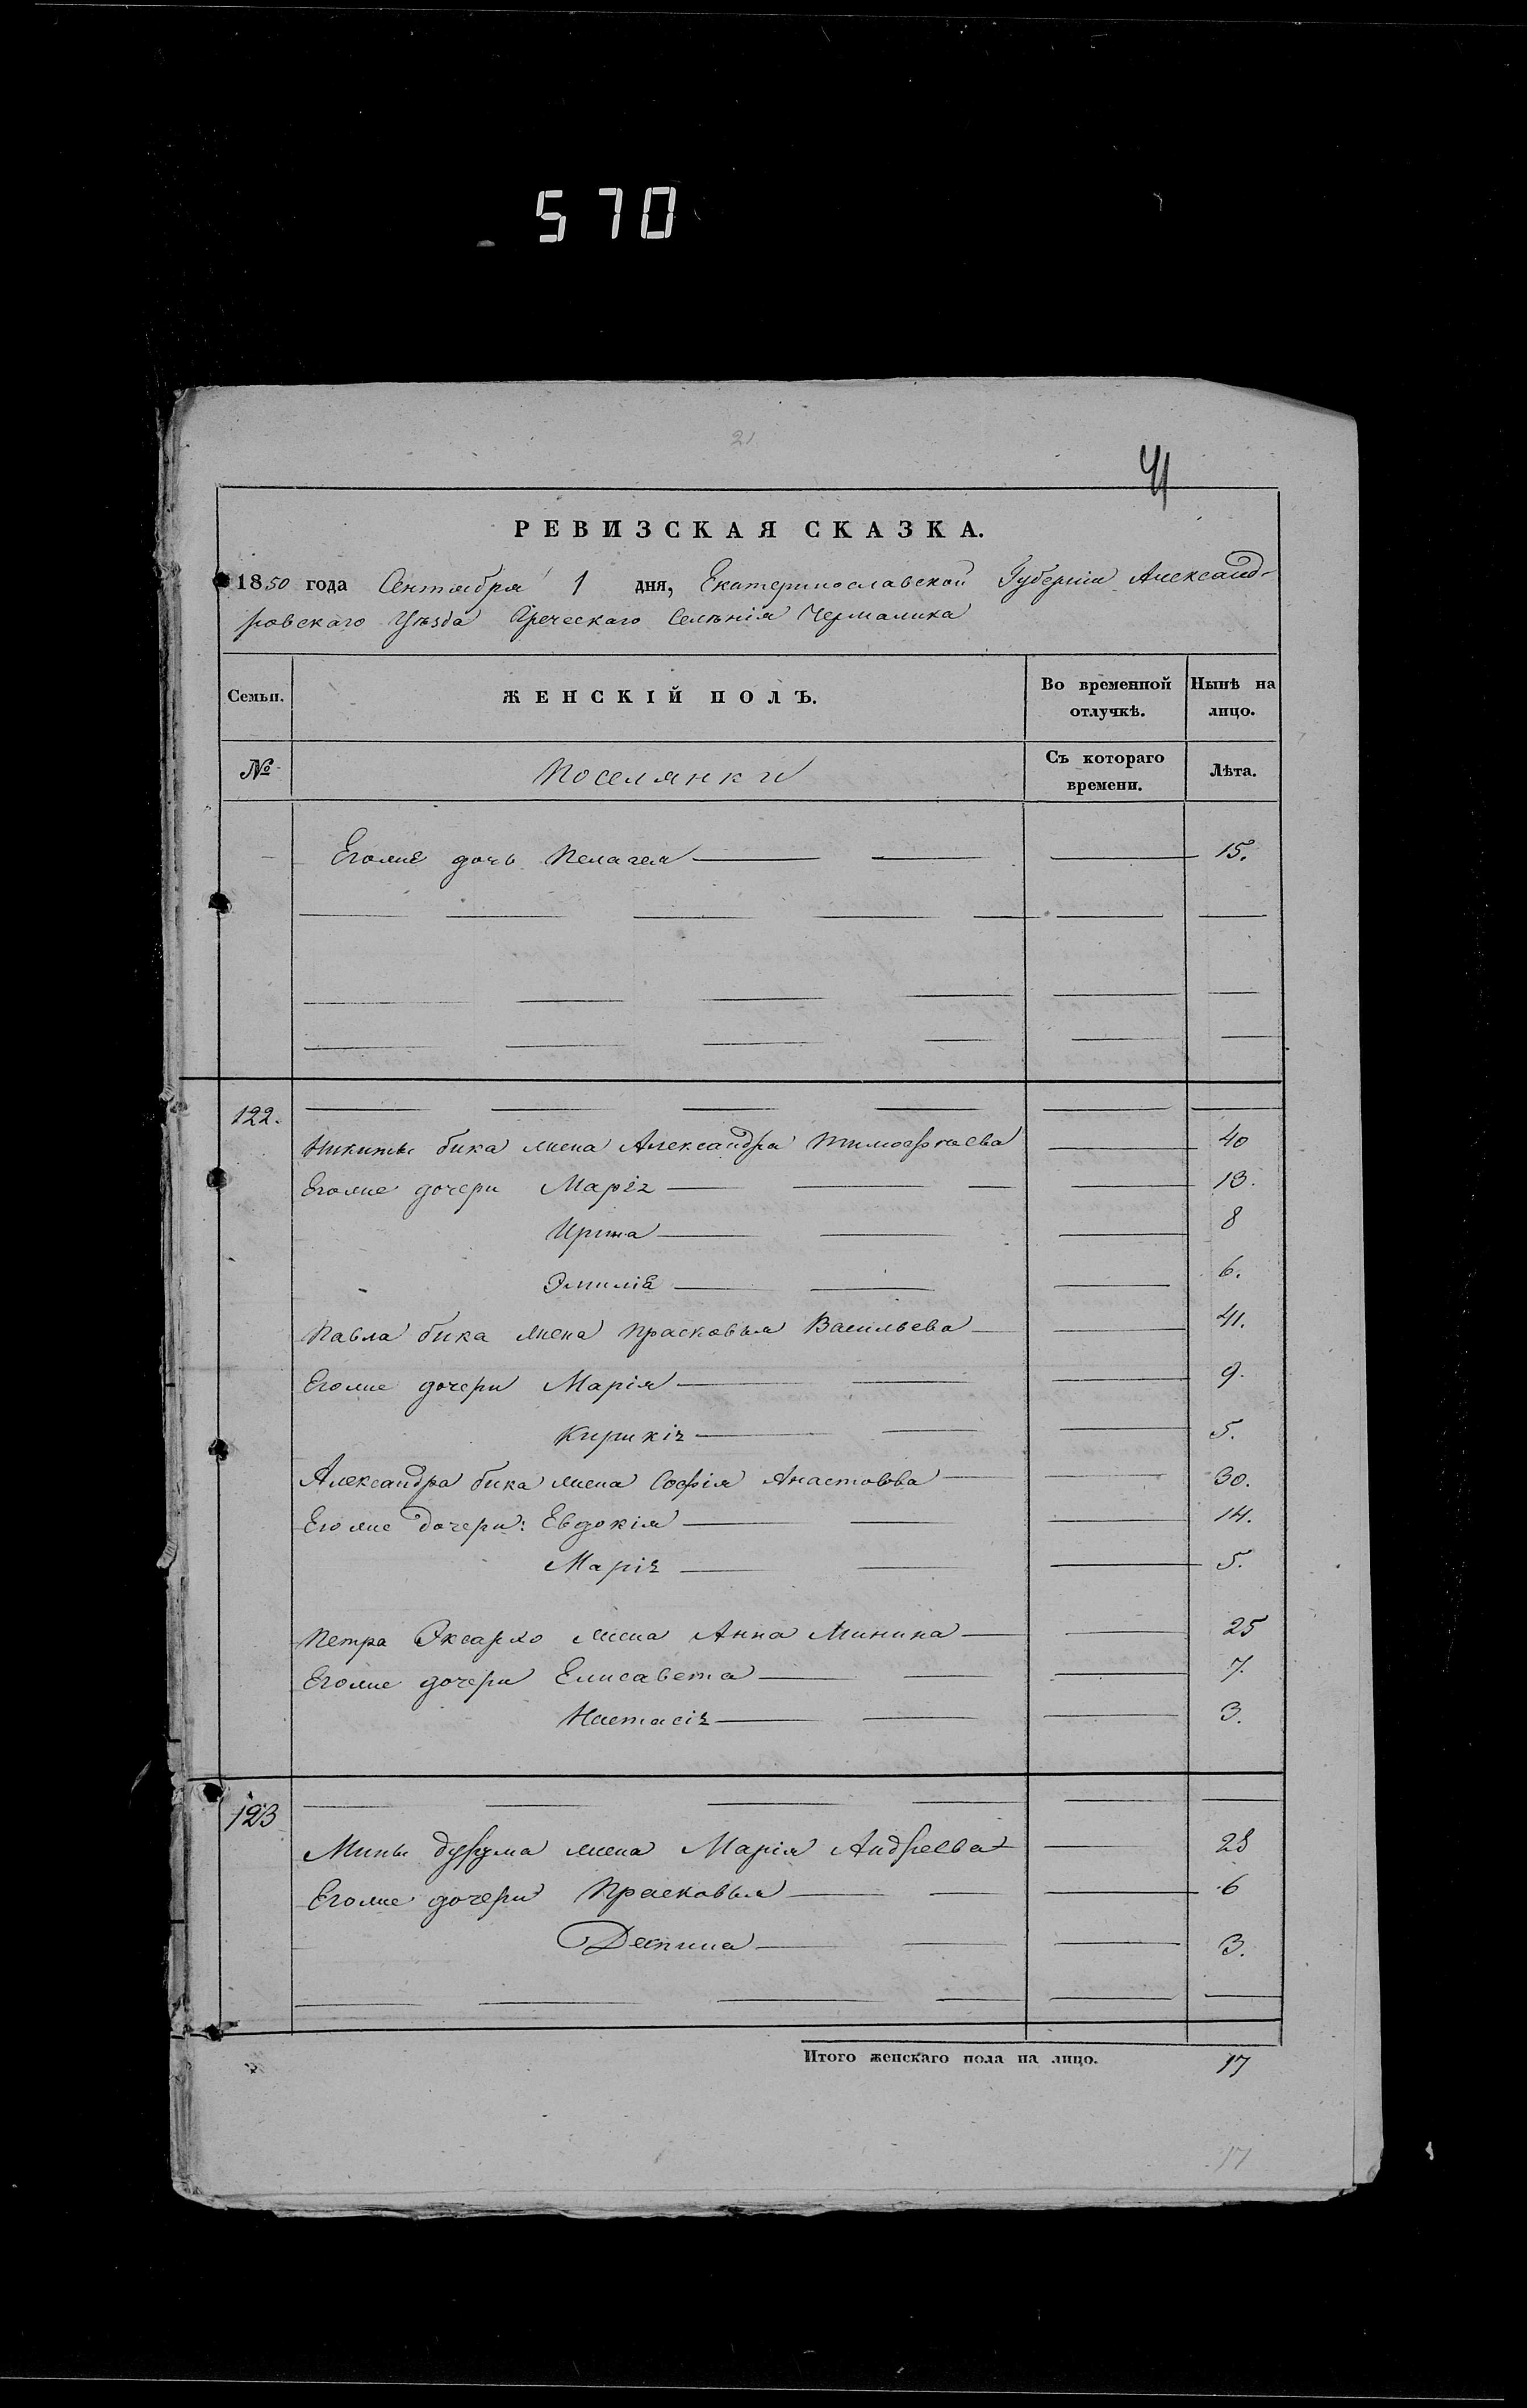 570
21
41
РЕВИЗСКАЯ СКАЗКА.
1850 года Сентября 1 дня, Екатеринославской Губерніи Александ-
ровскаго Уѣзда Греческаго Селѣнія Чермалика
Семьи. ЖЕНСКІЙ ПОЛЪ. Во временной отлучкѣ. Нынѣ на лицо.
№ Поселянки Съ котораго времени. Лѣта.
Егоже дочь Пелагея 15.
122.
Никиты бика жена Александра Тимофѣева 40
Егоже дочери Марія 13.
Ирина 8
Эмилія 6.
Павла бика жена Прасковья Васильева 41.
Егоже дочери Марія 9.
Кирикія 5.
Александра бика жена Софія Анастовва 30.
Егоже дочери: Евдокія 14.
Марія 5.
Петра Эксархо жена Анна Минина 25
Егоже дочери Елисавета 7.
Настасія 3.
123
Мины дурума жена Марія Андреева 28
Егоже дочери Прасковья 6
Деспина 3.
Итого женскаго пола на лицо. 17
17